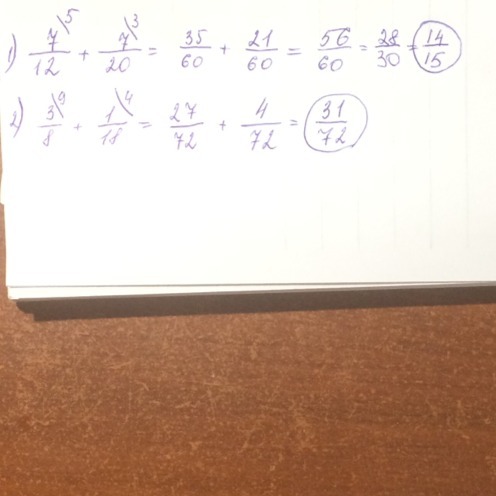 1) 7\5/12 + 7\3/20 = 35/60 + 21/60 = 56/60 = 28/30 = 14/15
2) 3\9/8 + 1\4/18 = 27/72 + 4/72 = 31/72